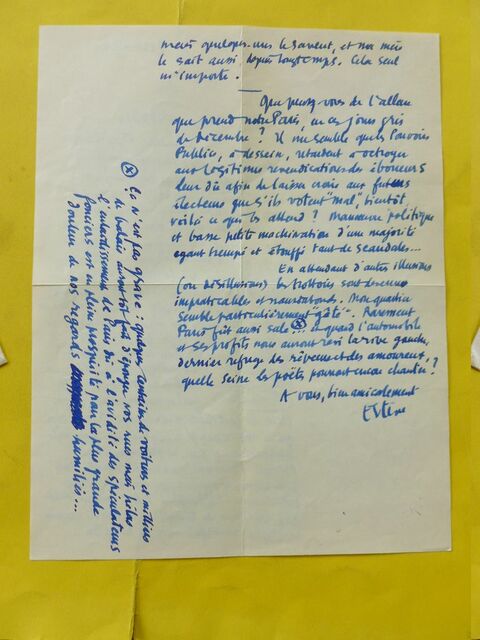 mais quelques-uns le savent, et ma mère
le sait aussi, depuis longtemps. Cela seul
m'importe.
Que pensez-vous de l'allure
que prend notre Paris, en ces jours gris
de Décembre ? Il me semble que les Pouvoirs
Publics, à dessein, retardent à octroyer
aux légitimes revendications des éboueurs
leur dû afin de laisser croire aux futurs
électeurs que s'ils votent "mal", bientôt
voilà ce qui les attend ? Manœuvre politique
et basse petite machination d'une majorité
ayant trempé et étouffé tant de scandales...
En attendant d'autres illusions
(ou désillusions) les trottoirs sont devenus
impraticables et nauséabonds. Mon quartier
semble particulièrement "gâté". Rarement
Paris fût aussi sale... ⓧ à quand l'automobile
et ses profits nous auront ravi la rive gauche,
dernier refuge des rêveurs et des amoureux,
quelle Seine les poètes pourront encore chanter ?
A vous, bien amicalement
ⓧ Ce n'est pas grave : quelques centaines de voitures et milliers
de balais auront tôt fait d'épurer vos rues mais hélas
l'enlaidissement de Paris dû à l'avidité des spéculateurs
fonciers est en pleine prospérité pour la plus grande
douleur de nos regards humiliés...